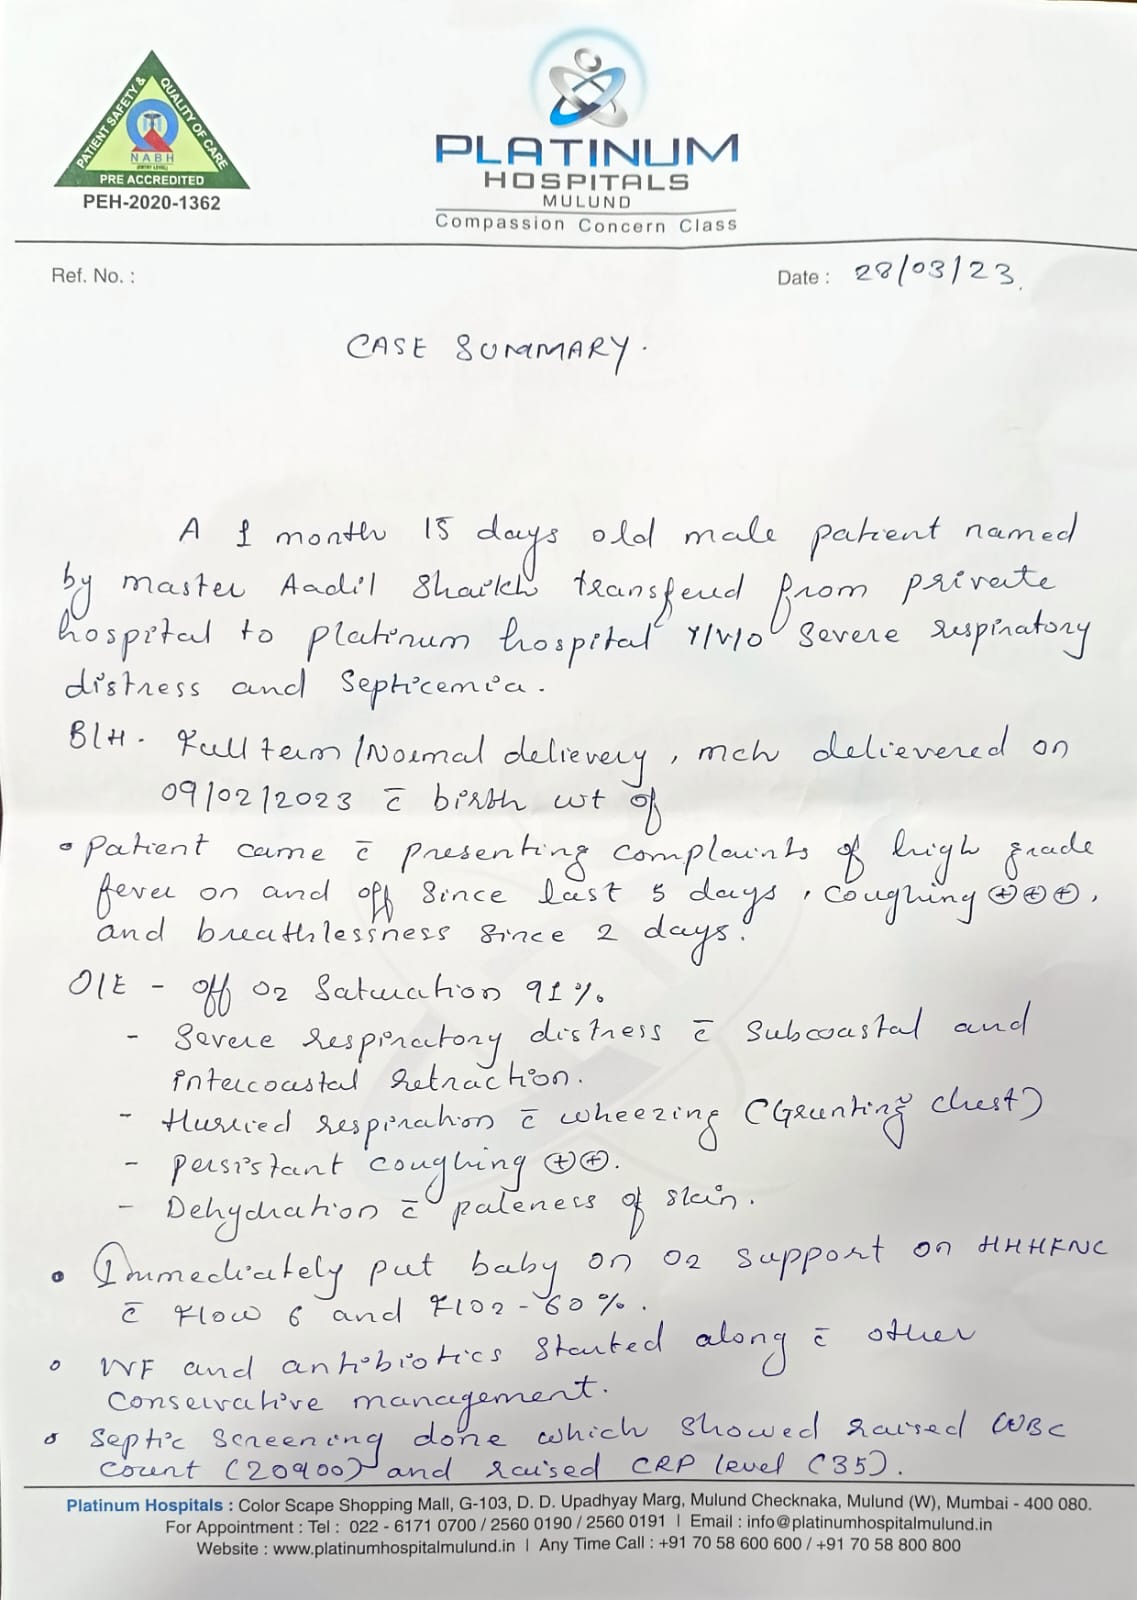 PATIENT SAFETY & QUALITY OF CARE
NABH
(ENTRY LEVEL)
PRE ACCREDITED
PEH-2020-1362
PLATINUM
HOSPITALS
MULUND
Compassion Concern Class
Ref. No. :
Date : 28/03/23.
CASE SUMMARY.
A 1 month 15 days old male patient named
by master Aadil Shaikh transferd from private
hospital to platinum hospital i/v/o severe respiratory
distress and Septicemia.
B/H. Full term/Normal delievery, mch delievered on
09/02/2023 c̄ birth wt of
• Patient came c̄ presenting complaints of high grade
fever on and off since last 5 days, coughing ⊕⊕⊕,
and breathlessness since 2 days.
O/E - off O2 Saturation 91%.
- Severe respiratory distress c̄ subcoastal and
intercoastal retraction.
- Hurried respiration c̄ wheezing (Grunting chest)
- Persistant coughing ⊕⊕.
- Dehydration c̄ paleness of skin.
• Immediately put baby on O2 support on HHHFNC
c̄ Flow 6 and FIO2 - 60%.
• IVF and antibiotics started along c̄ other
conservative management.
• Septic screening done which showed raised WBC
count (20900) and raised CRP level (35).
Platinum Hospitals : Color Scape Shopping Mall, G-103, D. D. Upadhyay Marg, Mulund Checknaka, Mulund (W), Mumbai - 400 080.
For Appointment : Tel : 022 - 6171 0700 / 2560 0190 / 2560 0191 | Email : info@platinumhospitalmulund.in
Website : www.platinumhospitalmulund.in | Any Time Call : +91 70 58 600 600 / +91 70 58 800 800